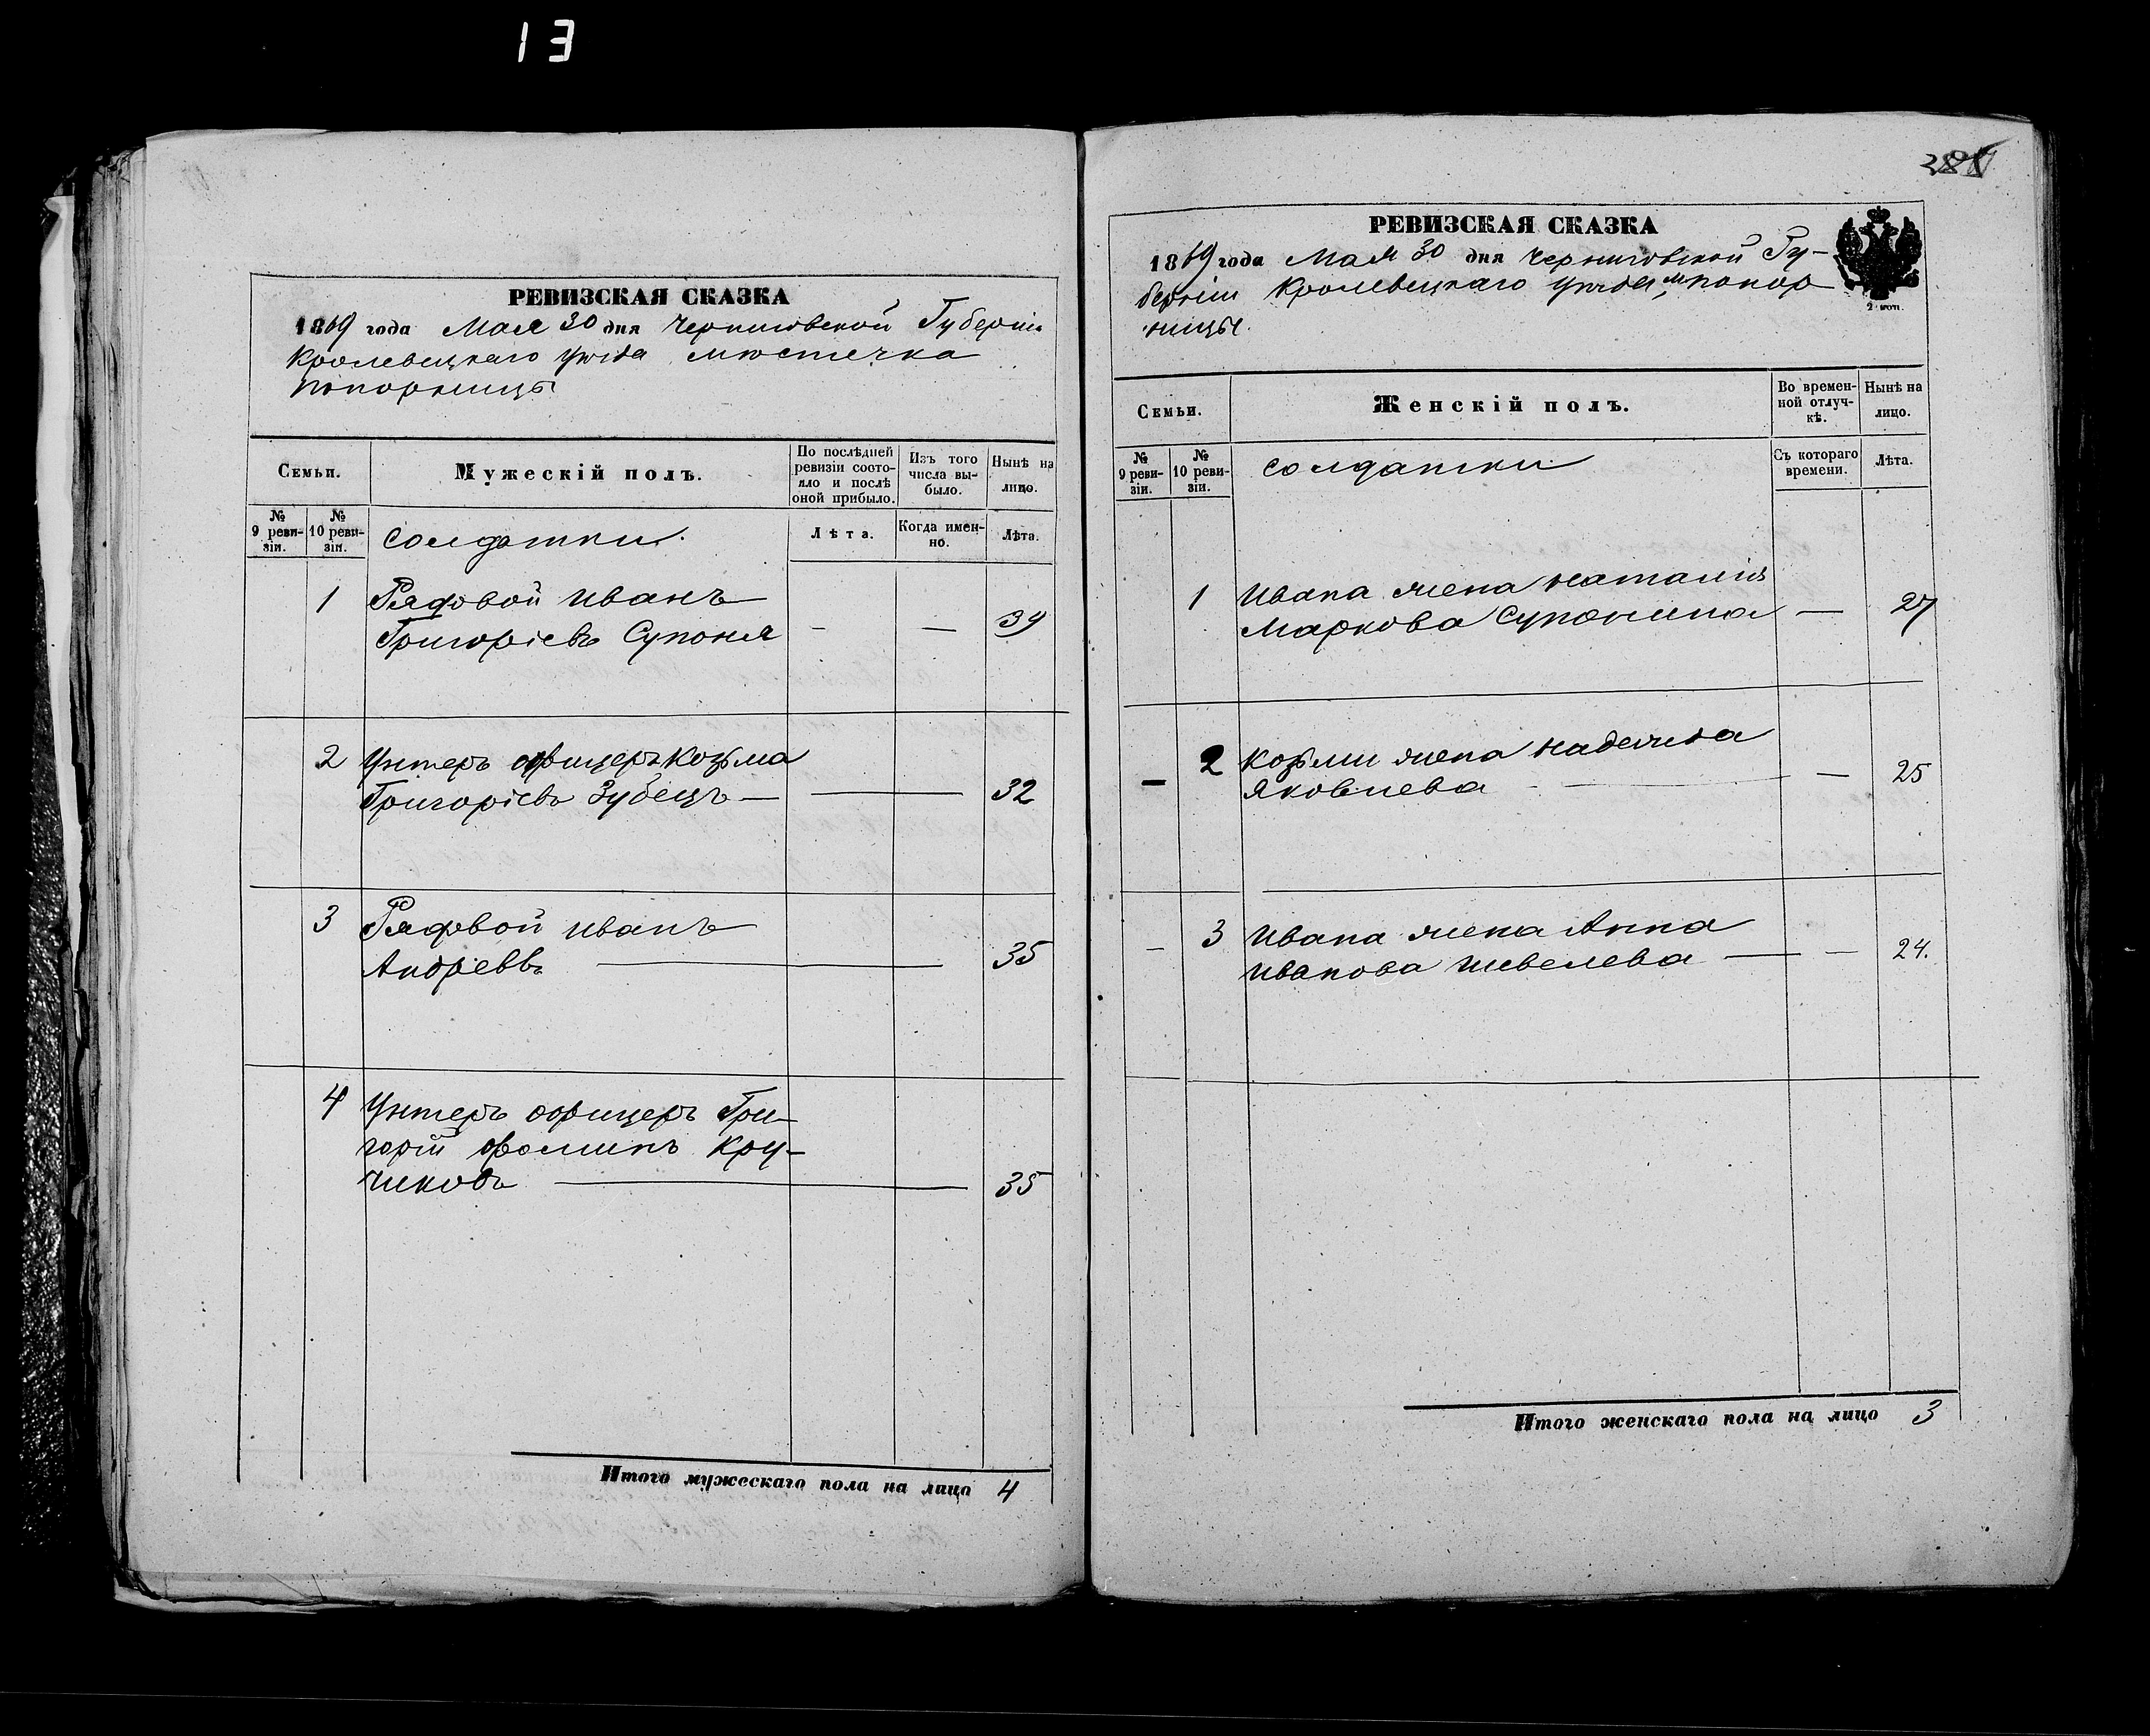 13
РЕВИЗСКАЯ СКАЗКА
1869 года Мая 30 дня Черниговской Губерніи
Кролевецкаго уѣзда мѣстечка
Понорницы
Семьи.
Мужескій полъ.
По послѣдней ревизіи состояло и послѣ оной прибыло.
Изъ того числа выбыло.
Нынѣ на лицо.
№ 9 ревизіи.
№ 10 ревизіи.
Солдатки.
Лѣта.
Когда именно.
Лѣта.
1 Рядовой Иванъ
Григоріевъ Супоня — — 39
2 Унтеръ офицеръ Козьма
Григоріевъ Зубецъ — 32
3 Рядовой Иванъ
Андреевъ — 35
4 Унтеръ офицеръ Гри-
горій Фоминъ Кру-
чиковъ — 35
Итого мужескаго пола на лицо 4
РЕВИЗСКАЯ СКАЗКА
1869 года Мая 30 дня Черниговской Гу-
берніи Кролевецкаго уѣзда м Понор
ницы.
2 коп.
Семьи.
Женскій полъ.
Во временной отлучкѣ.
Нынѣ на лицо.
№ 9 ревизіи.
№ 10 ревизіи.
Солдатки
Съ котораго времени.
Лѣта.
1 Ивана жена Наталия
Маркова Супонина — 27
— 2 Козьми жена Надежда
Яковлева — — 25
— 3 Ивана жена Анна
Иванова Шевелева — — 24.
Итого женскаго пола на лицо 3